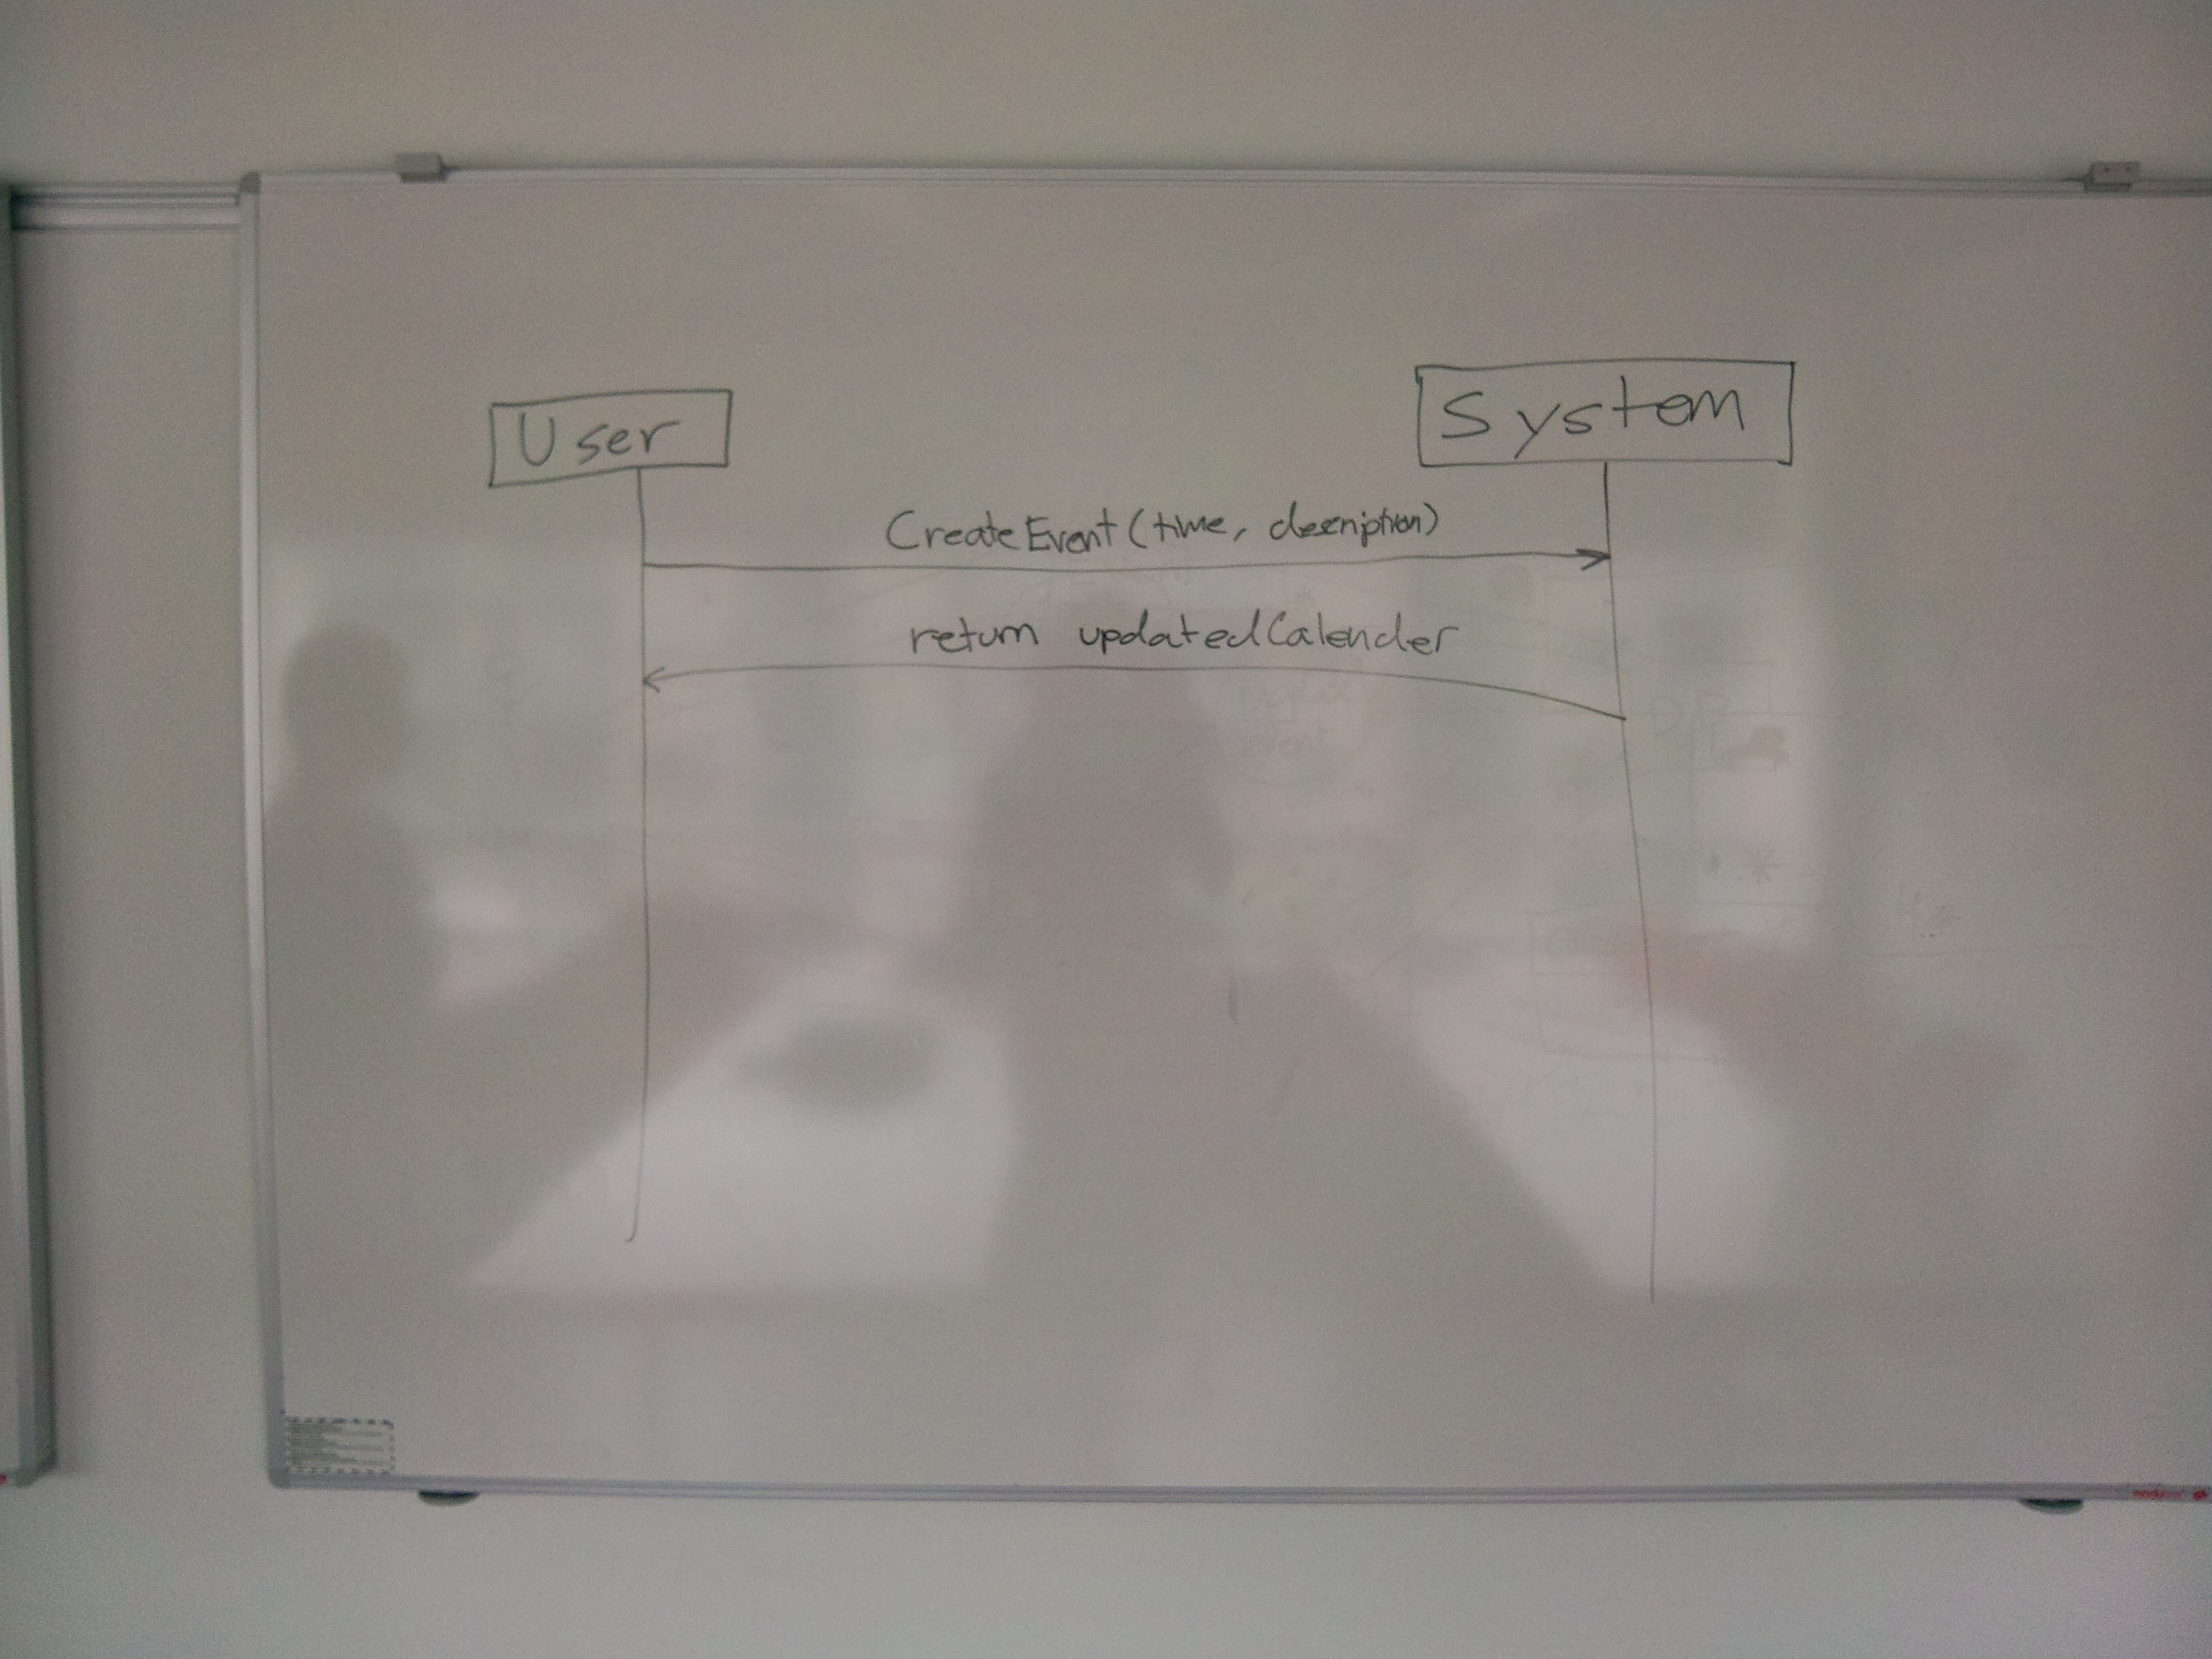 User
System
CreateEvent(time, description)
return updatedCalender